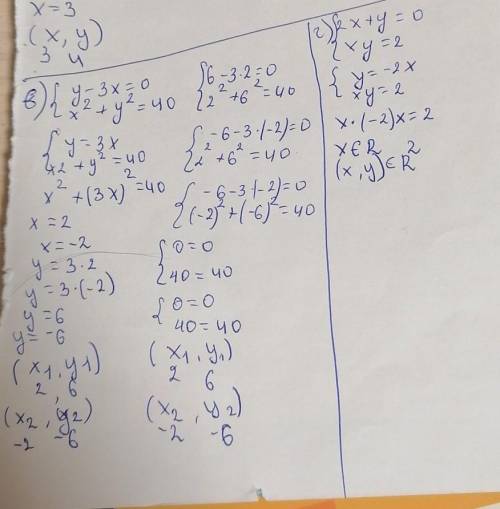 x=3
(x, y)
3 4
в) { y-3x=0
x²+y²=40
{ y=3x
x2+y²=40
x²+(3x)²=40
x=2
x=-2
y=3·2
y=3·(-2)
y=6
y=-6
(x1, y1)
2, 6
(x2, y2)
-2 -6
{ 6-3·2=0
2²+6²=40
{ -6-3·(-2)=0
2²+6²=40
{ -6-3·(-2)=0
(-2)²+(-6)²=40
{ 0=0
40=40
{ 0=0
40=40
(x1, y1)
2 6
(x2, y2)
-2 -6
г) { 2x+y=0
xy=2
{ y=-2x
xy=2
x·(-2)x=2
x∈R
(x, y)∈R²